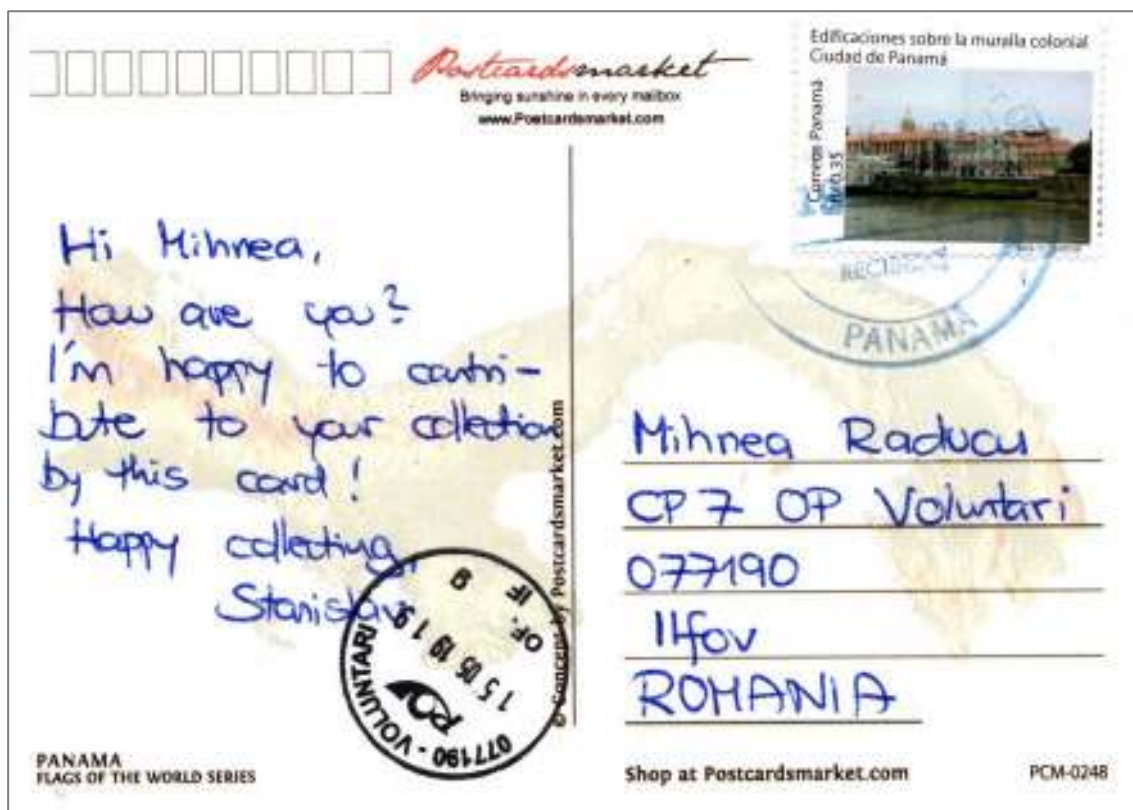 Postcardsmarket
Bringing sunshine in every mailbox
www.Postcardsmarket.com
Edificaciones sobre la muralla colonial
Ciudad de Panamá
Correos Panamá
0.35
PANAMÁ
Hi Mihnea,
How are you?
I'm happy to contri-
bute to your collection
by this card!
Happy collecting,
Stanislav
© Concept by Postcardsmarket.com
Mihnea Raducu
CP 7 OP Voluntari
077190
Ilfov
ROMANIA
077190 - VOLUNTARI
OF. IF
15 05 19 19
PANAMA
FLAGS OF THE WORLD SERIES
Shop at Postcardsmarket.com
PCM-0248